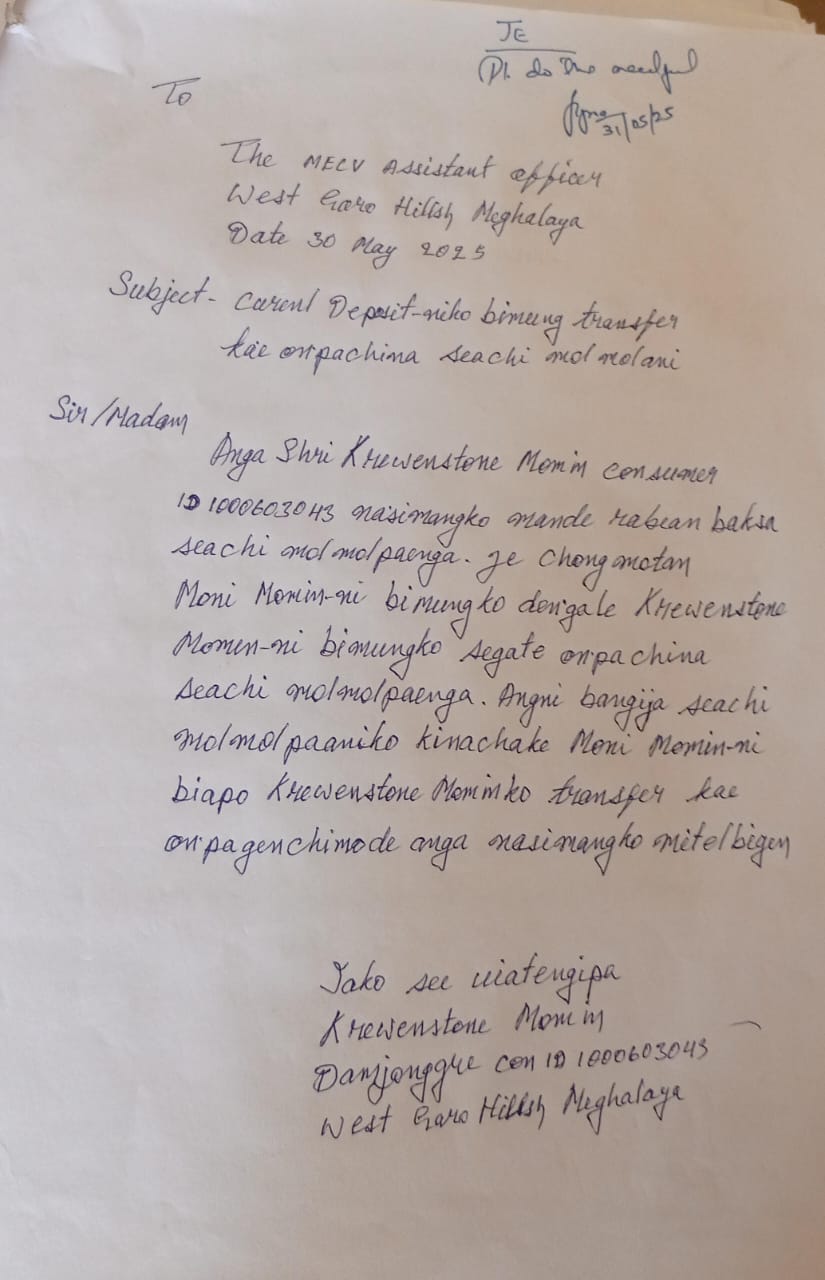 JE
Pl. do the needful
31/05/25
To
The MECV Assistant officer
West Garo Hillsh Meghalaya
Date 30 May 2025
Subject - Carent Deposit-niko bimung transfer
kae on·pachina seachi mol molani
Sir/Madam
Anga Shri Krewenstone Momin consumer
ID 1000603043 na·simangko mande rabean baksa
seachi mol molpaenga. Je chongmotan
Moni Momin-ni bimungko don·gale Krewenstone
Momin-ni bimungko segate on·pachina
seachi molmolpaenga. Angni bangija seachi
molmolpaaniko kinachake Moni Momin-ni
biapo Krewenstone Mominko transfer kae
on·pagenchimode anga na·simangko mitelbigen
Iako see watengipa
Krewenstone Momin
Danjonggre con ID 1000603043
West Garo Hillsh Meghalaya